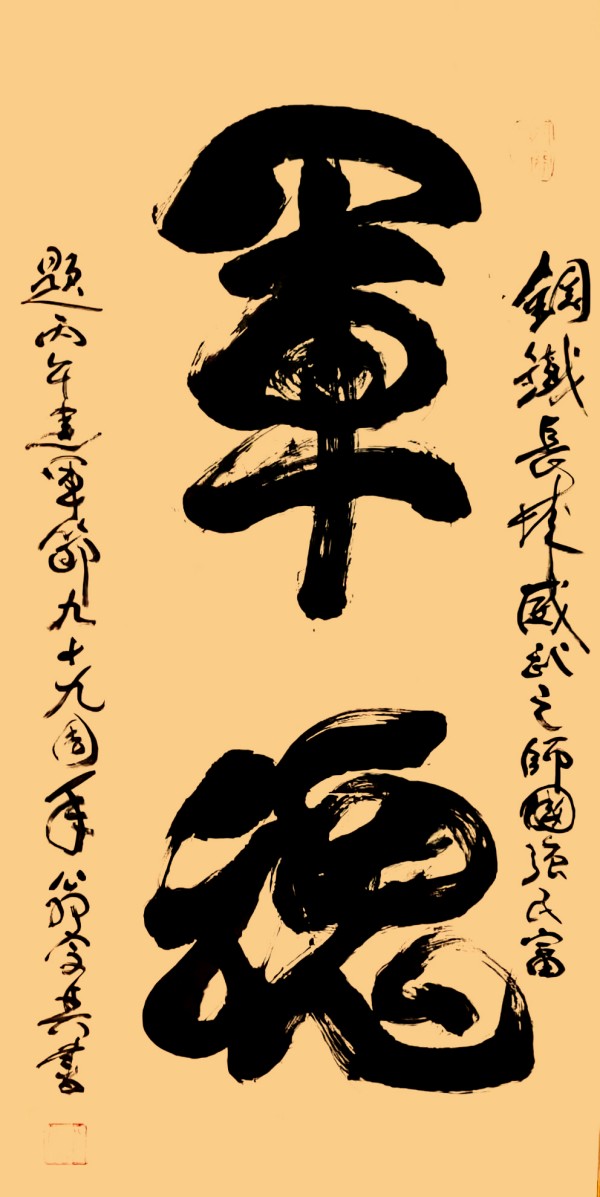 鋼鐵長城威武之師國強民富
軍魂
題丙午建軍節九十九周年翁書